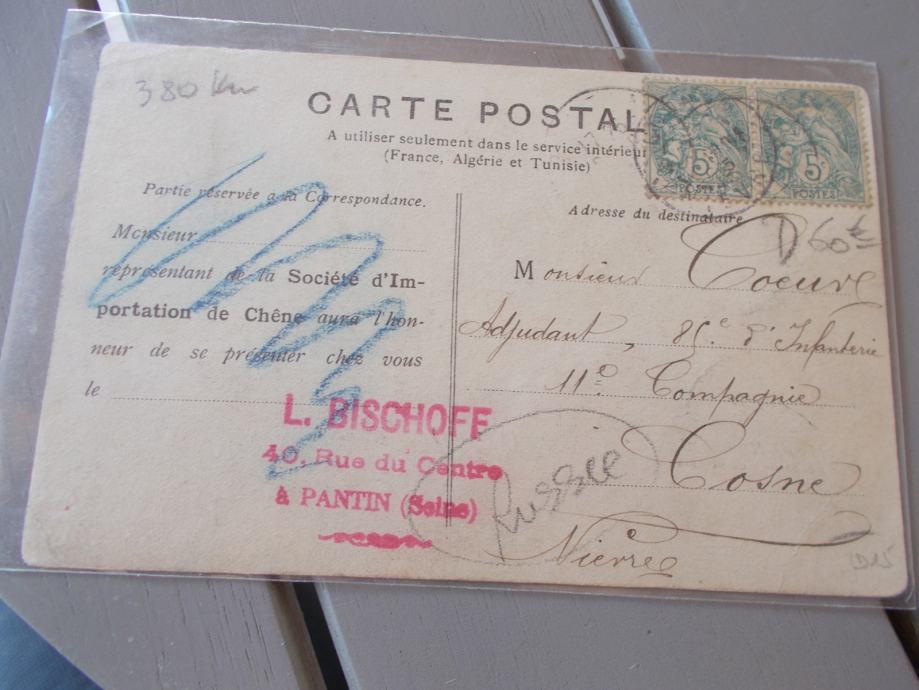 380 Km
CARTE POSTAL
A utiliser seulement dans le service intérieur
(France, Algérie et Tunisie)
5
POSTES
5
POSTES
Partie réservée à la Correspondance.
Monsieur
représentant de la Société d'Im-
portation de Chêne aura l'hon-
neur de se présenter chez vous
le
L. BISCHOFF
40, Rue du Centre
à PANTIN (Seine)
Adresse du destinataire
D60
Monsieur Coeuré
Adjudant, 85e. d'Infanterie
11e Compagnie
Cosne
Nièvre